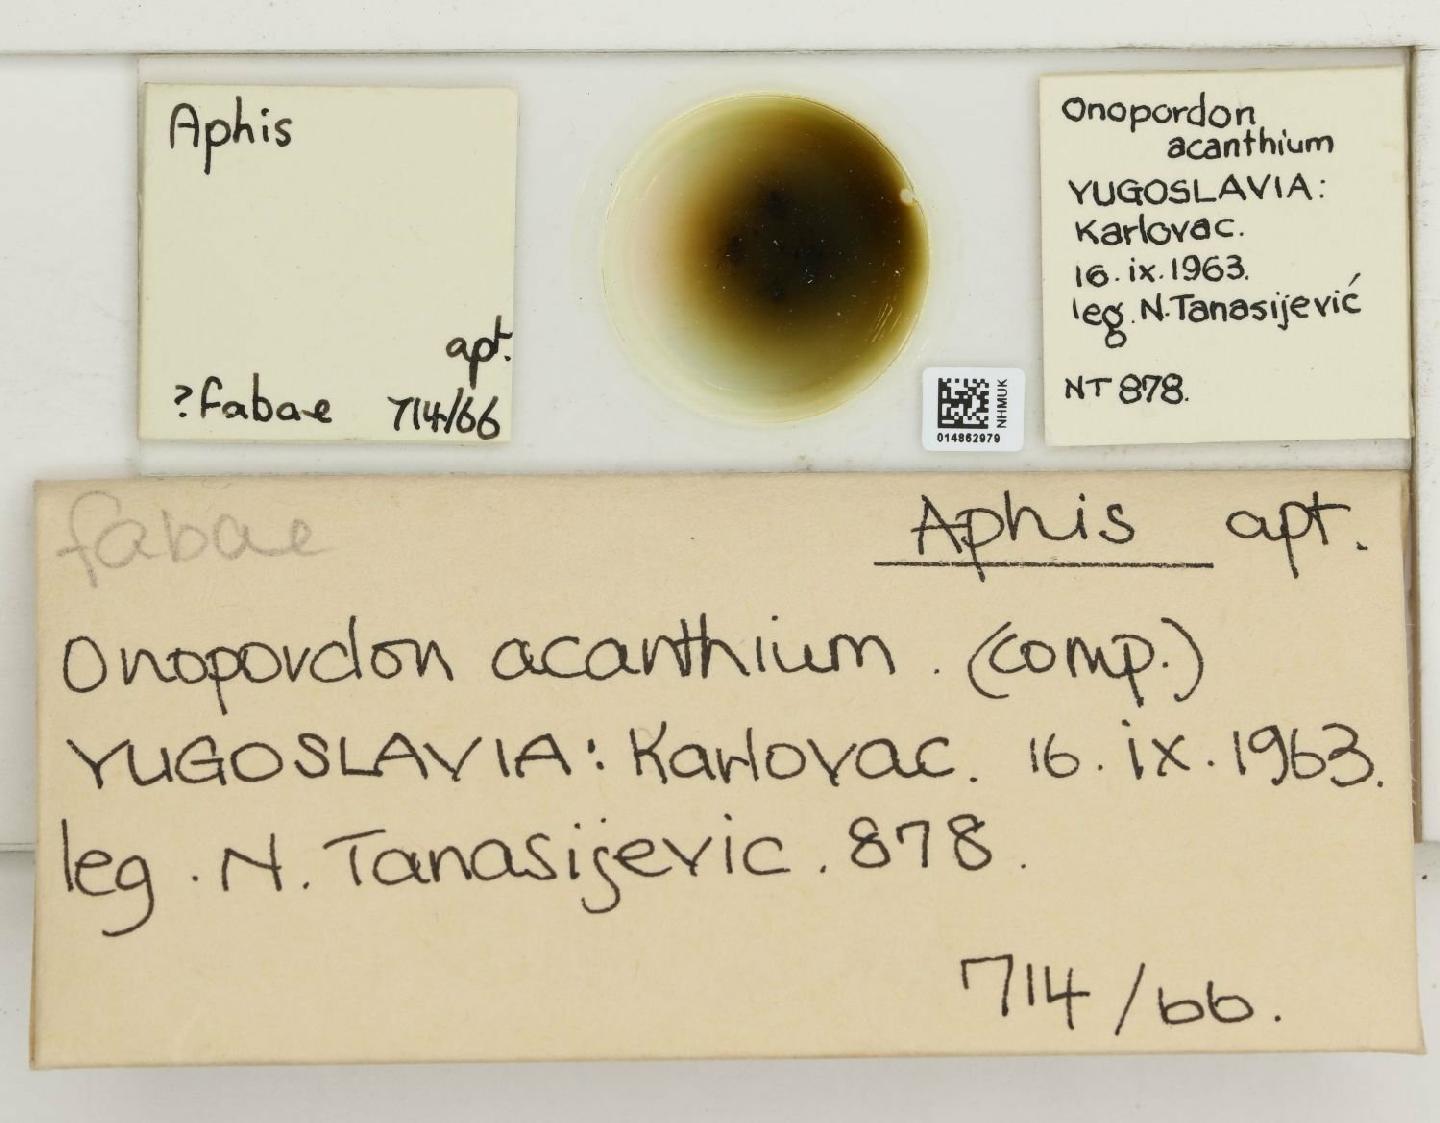 Aphis
apt.
?fabae 714/66
NHMUK
014862979
Onopordon
acanthium
YUGOSLAVIA:
Karlovac.
16.ix.1963.
leg. N.Tanasijević
NT 878.
fabae Aphis apt.
Onopordon acanthium. (comp.)
YUGOSLAVIA: Karlovac. 16.ix.1963.
leg. N. Tanasijevic. 878.
714/66.